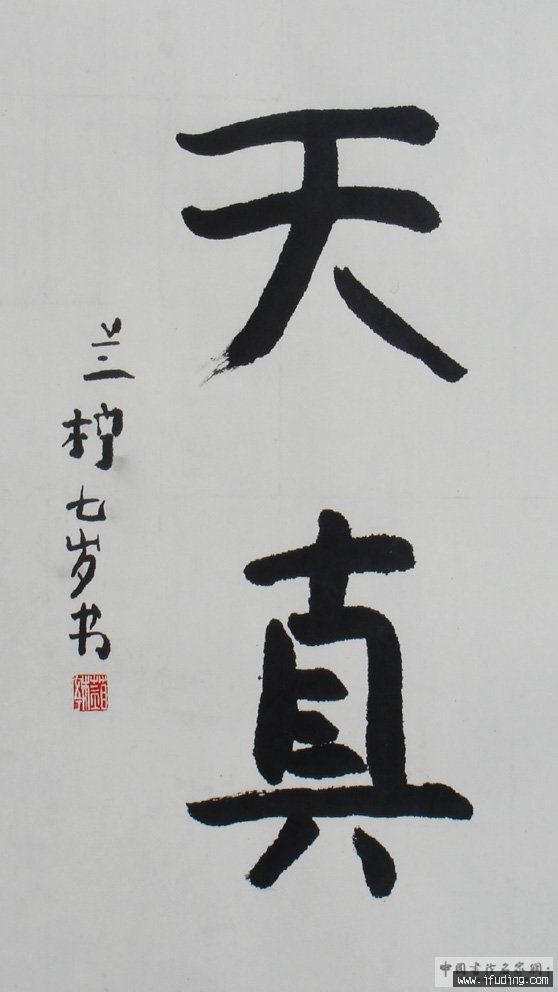 天真
兰柠七岁书
中国書法名家網·
www.ifuding.com